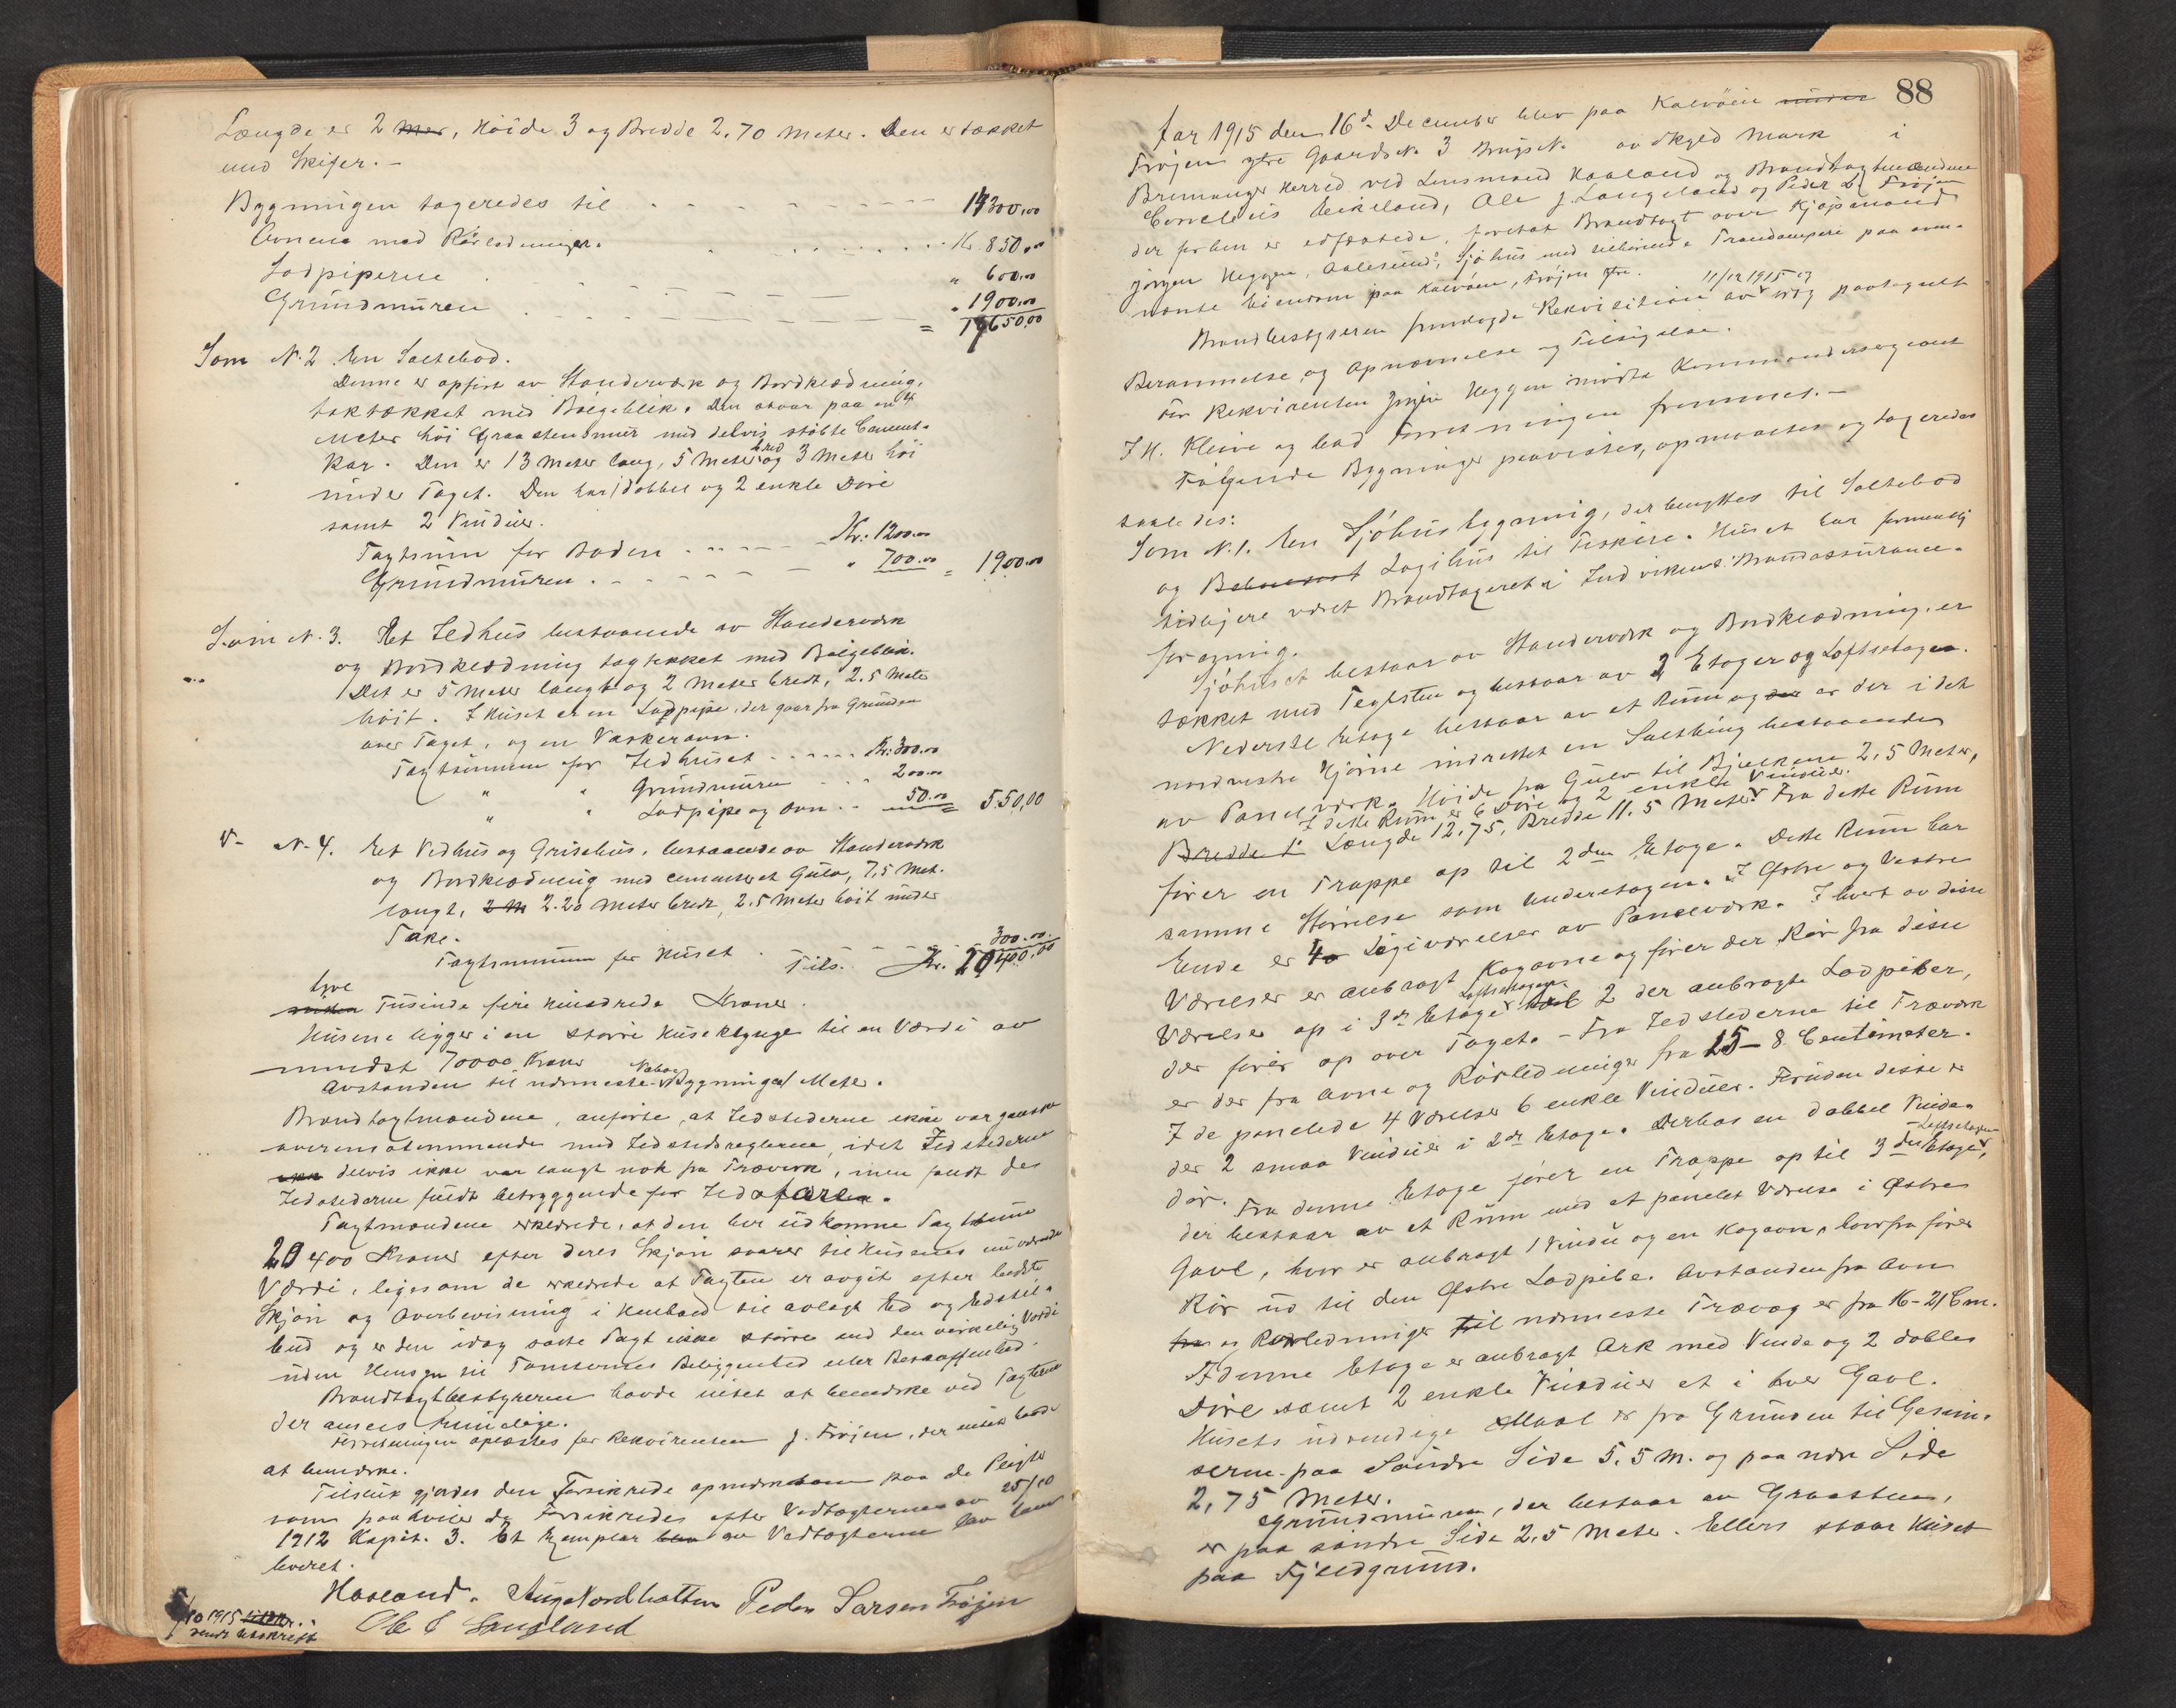 Længde er 2 mer, Høide 3 og Bredde 2.70 Meter. Den er tækket
med Skifer. –
Bygningen tagseredes til 17300,00
Ovnene med Rørledninger. Kr. 850,00
Ladpiperne " 600.00
Grundmuren " 1900.00
= 650,00
Som N. 2 En Saltebod.
Denne er opført av Stenderværk og Bordklædning,
taktækket med Bølgeblik. Den staar paa en
Meter høi Graastensmur med delvis støbte Cement-
kar. Den er 13 Meter lang, 5 Meter bred og 3 Meter høi
under Taget. Den har 1 dobbel og 2 enkle Døre
samt 2 Vinduer.
Taxtsum for Boden Kr: 1200.00
Grundmuren. " 700.00 = 1900.00
Som N. 3. Et Ildhus bestaaende av Stenderværk
og Bordklædning tagtækket med Bølgeblik.
Det er 5 Meter langt og 2 Meter bredt, 2.5 Meter
høit. I Huset er en Ladpipe, der gaar fra Grunden
over Taget, og en Vaskeravn.
Taxtsummen for Ildhuset Kr: 300.00
" " Grundmuren 200.00
" " Ladpipe og Ovn 50.00 = 550,00
V- N- 4. Et Vedhus og Grisehus, bestaaende av Stenderværk
og Bordklædning med cementeret Gulv, 7,5 Met.
langt, 2 M 2.20 Meter bredt, 2.5 Meter høit under
Take.
Taxtsummen for Huset 300.00.
Tils. Kr. 20400.00
tyve
Tusinde fire Hundrede Kroner.
Husene ligger i en større Huseklynge til en Værdi av
mindst 70000 Kroner
Avstanden til nærmeste Nabo Bygninger Meter.
Brandtaxtmændene, anførte, at Ildstederne ikke var ganske
overensstemmende med Ildstedsreglerne, idet Ildstederne
delvis ikke var langt nok fra Træverk, men fandt des
Ildstederne fuldt betryggende for Ildsfaren.
Taxtmændene erklærede, at den her udkomne Taxtsum
20400 Kroner efter deres Skjøn svarer til Husenes nuværende
Værdi, ligesom de erklærede at Taxten er avgit efter bedste
Skjøn og Overbevisning i Henhold til avlagt Ed og Edstil-
bud og er den idag satte Taxt ikke større end den virkelig Værdi
uden Hensyn til Tomternes Beliggenhed eller Beskaffenhed.
Brandtaxtbestyreren havde intet at bemærke ved Taxten
der ansees rimelige.
Forretningen oplæstes for Rekvirenten J. Frøjen, der intet havde
at bemærke.
Tilslut gjordes den Forsikrede opmærksom paa de Pligter
som paahviler de Forsikredes efter Vedtægterne av 25/10
1912 Kapit. 3. Et Exemplar blev av Vedtægterne blev
leveret.
Haaland. Peder Larsen Frøjen
Ole J Langeland
/10 1915
sendt Utskrift
88
Aar 1915 den 16d. December blev paa Kalvøen under
Frøjen ytre Gaards N. 3 Brugs N. av Skyld Mark i
Bremanger Herred ved Lensmand Haaland og Brandtaxtmændene
Cornelius Eikeland, Ole J. Langeland og Peder L. Frøjen
der forhen er edfæstede, foretat Brandtaxt over Kjøpmand
Jørgen Heggen, Aalesund, Sjøhus med tilhørende Trandamperi paa oven-
nevnte Eiendom paa Kalvøen, Frøjen ytre.
Brandbestyreren fremlagde Rekvisition av 11/12 1915 og paategnet
Berammelse, og Opnævnelse og Tilsigelse.
For Rekvirenten Jørgen Heggen mødte Kommandersergeant
J H. Kleive og bad Forretningen fremmet. –
Følgende Bygninger paavistes, opmaaltes og tagseredes
saaledes:
Som N. 1. En Sjøhusbygning, der benyttes til Saltebod
og Logihus til Fiskere. Huset har formentlig
tidligere været Brandtaxeret i Indvikens Brandassurance-
forening.
Sjøhuset bestaar av Stenderværk og Bordklædning, er
tækket med Teglsten og bestaar av 2 Etager og Loftsetagen.
Nederste Etage bestaar av et Rum og er der i det
nordvestre Hjørne indrettet en Saltbing bestaaende
av Panelværk. Høide fra Gulv til Bjælkene 2,5 Meter,
I dette Rum er 6 Døre og 2 enkle Vinduer.
Bredde 1 Længde 12.75, Bredde 11.5 Meter. Fra dette Rum
fører en Trappe op til 2den Etage. Dette Rum har
samme Størrelse som Underetagen. I Østre og Vestre
Ende er 4 Logiværelser av Panelværk. I hvert av disse
Værelser er anbragt Kogovne og fører der Rør fra disse
Værelser op i 3die Etage Loftsetagen 2 der anbragte Ladpiber,
der fører op over Taget. – Fra Ildstederne til Træværk
er der fra Ovne og Rørledninger fra 15 – 8 Centimeter.
I de panelede 4 Værelser 6 enkle Vinduer. Foruden disse er
der 2 smaa Vinduer i 2den Etage. Derhos en dobbel Vinde-
dør. Fra denne Etage fører en Trappe op til 3die Etage, Loftsetagen
der bestaar av et Rum med et panelet Værelse i Østre
Gavl, hvor er anbragt 1 Vindu og en Kogovn, hvorfra fører
Rør ud til den Østre Ladpibe. Avstanden fra Ovn
og Rørledninger til nærmeste Trævæg er fra 16-21 Cm.
I denne Etage er anbragt Ark med Vinde og 2 doble
Døre samt 2 enkle Vinduer et i hver Gavl.
Husets udvendige Maal er fra Grunden til Gesim-
serne paa Søndre Side 5.5 M. og paa ndre Side
2,75 Meter.
Grundmuren, der bestaar av Graasten,
er paa søndre Side 2.5 Meter. Ellers staar Huset
paa Fjeldgrund.